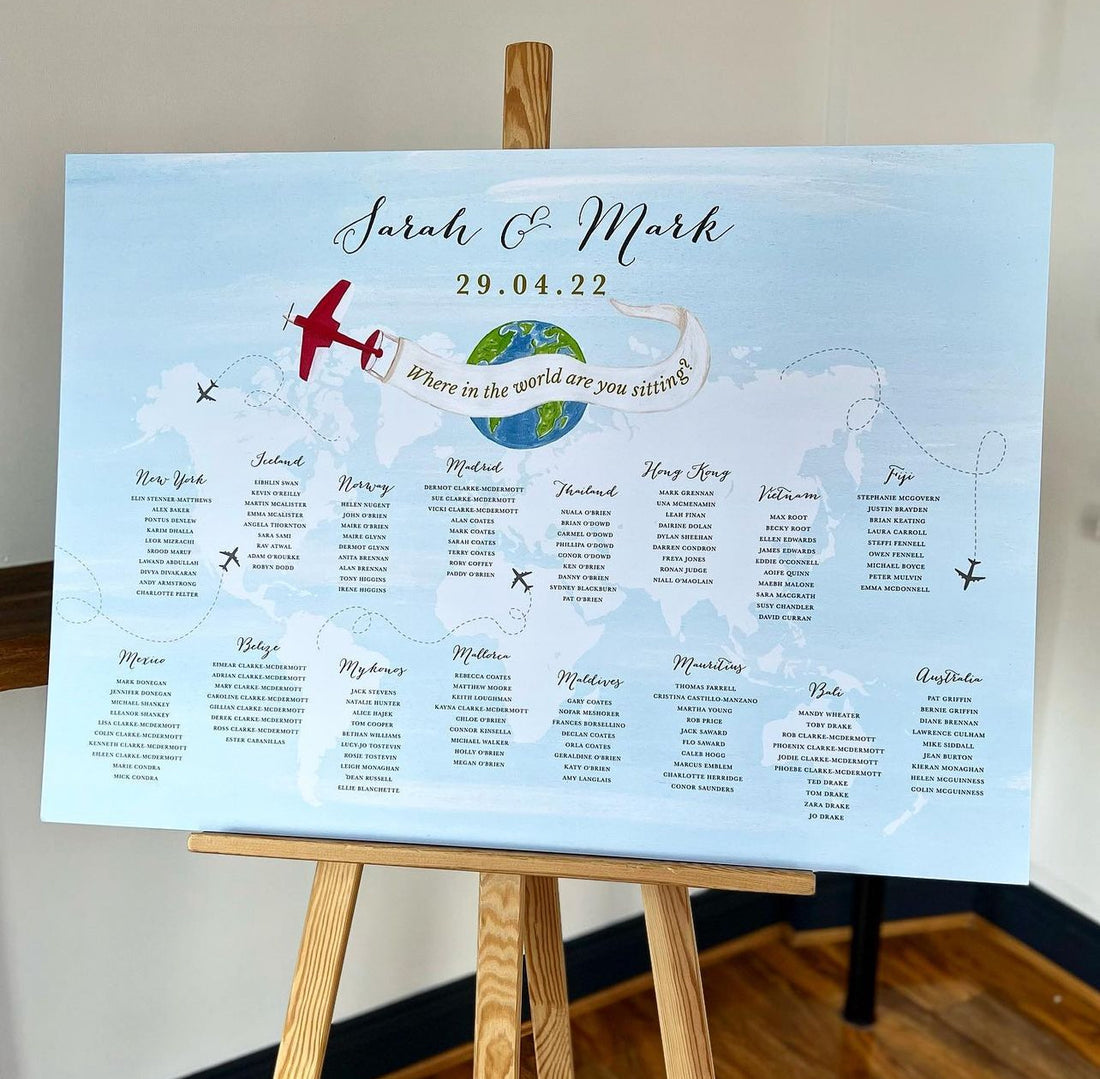 Sarah & Mark
29.04.22
Where in the world are you sitting?
New York
ELIN STENNER-MATTHEWS
ALEX BAKER
PONTUS DENLEW
KARIM DHALLA
LEOR MIZRACHI
SROOD MARUF
LAWAND ABDULLAH
DIVYA DIVAKARAN
ANDY ARMSTRONG
CHARLOTTE PELTER
Iceland
EIBHLIN SWAN
KEVIN O'REILLY
MARTIN MCALISTER
EMMA MCALISTER
ANGELA THORNTON
SARA SAMI
RAV ATWAL
ADAM O'ROURKE
ROBYN DODD
Norway
HELEN NUGENT
JOHN O'BRIEN
MAIRE O'BRIEN
MAIRE GLYNN
DERMOT GLYNN
ANITA BRENNAN
ALAN BRENNAN
TONY HIGGINS
IRENE HIGGINS
Madrid
DERMOT CLARKE-MCDERMOTT
SUE CLARKE-MCDERMOTT
VICKI CLARKE-MCDERMOTT
ALAN COATES
MARK COATES
SARAH COATES
TERRY COATES
RORY COFFEY
PADDY O'BRIEN
Thailand
NUALA O'BRIEN
BRIAN O'DOWD
CARMEL O'DOWD
PHILLIPA O'DOWD
CONOR O'DOWD
KEN O'BRIEN
DANNY O'BRIEN
SYDNEY BLACKBURN
PAT O'BRIEN
Hong Kong
MARK GRENNAN
UNA MCMENAMIN
LEAH FINAN
DAIRINE DOLAN
DYLAN SHEEHAN
DARREN CONDRON
FREYA JONES
RONAN JUDGE
NIALL O'MAOLAIN
Vietnam
MAX ROOT
BECKY ROOT
ELLEN EDWARDS
JAMES EDWARDS
EDDIE O'CONNELL
AOIFE QUINN
MAEBH MALONE
SARA MACGRATH
SUSY CHANDLER
DAVID CURRAN
Fiji
STEPHANIE MCGOVERN
JUSTIN BRAYDEN
BRIAN KEATING
LAURA CARROLL
STEFFI FENNELL
OWEN FENNELL
MICHAEL BOYCE
PETER MULVIN
EMMA MCDONNELL
Mexico
MARK DONEGAN
JENNIFER DONEGAN
MICHAEL SHANKEY
ELEANOR SHANKEY
LISA CLARKE-MCDERMOTT
COLIN CLARKE-MCDERMOTT
KENNETH CLARKE-MCDERMOTT
EILEEN CLARKE-MCDERMOTT
MARIE CONDRA
MICK CONDRA
Belize
EIMEAR CLARKE-MCDERMOTT
ADRIAN CLARKE-MCDERMOTT
MARY CLARKE-MCDERMOTT
CAROLINE CLARKE-MCDERMOTT
GILLIAN CLARKE-MCDERMOTT
DEREK CLARKE-MCDERMOTT
ROSS CLARKE-MCDERMOTT
ESTER CABANILLAS
Mykonos
JACK STEVENS
NATALIE HUNTER
ALICE HAJEK
TOM COOPER
BETHAN WILLIAMS
LUCY-JO TOSTEVIN
ROSIE TOSTEVIN
LEIGH MONAGHAN
DEAN RUSSELL
ELLIE BLANCHETTE
Mallorca
REBECCA COATES
MATTHEW MOORE
KEITH LOUGHMAN
KAYNA CLARKE-MCDERMOTT
CHLOE O'BRIEN
CONNOR KINSELLA
MICHAEL WALKER
HOLLY O'BRIEN
MEGAN O'BRIEN
Maldives
GARY COATES
NOFAR MESHORER
FRANCES BORSELLINO
DECLAN COATES
ORLA COATES
GERALDINE O'BRIEN
KATY O'BRIEN
AMY LANGLAIS
Mauritius
THOMAS FARRELL
CRISTINA CASTILLO-MANZANO
MARTHA YOUNG
ROB PRICE
JACK SAWARD
FLO SAWARD
CALEB HOGG
MARCUS EMBLEM
CHARLOTTE HERRIDGE
CONOR SAUNDERS
Bali
MANDY WHEATER
TOBY DRAKE
ROB CLARKE-MCDERMOTT
PHOENIX CLARKE-MCDERMOTT
JODIE CLARKE-MCDERMOTT
PHOEBE CLARKE-MCDERMOTT
TED DRAKE
TOM DRAKE
ZARA DRAKE
JO DRAKE
Australia
PAT GRIFFIN
BERNIE GRIFFIN
DIANE BRENNAN
LAWRENCE CULHAM
MIKE SIDDALL
JEAN BURTON
KIERAN MONAGHAN
HELEN MCGUINNESS
COLIN MCGUINNESS